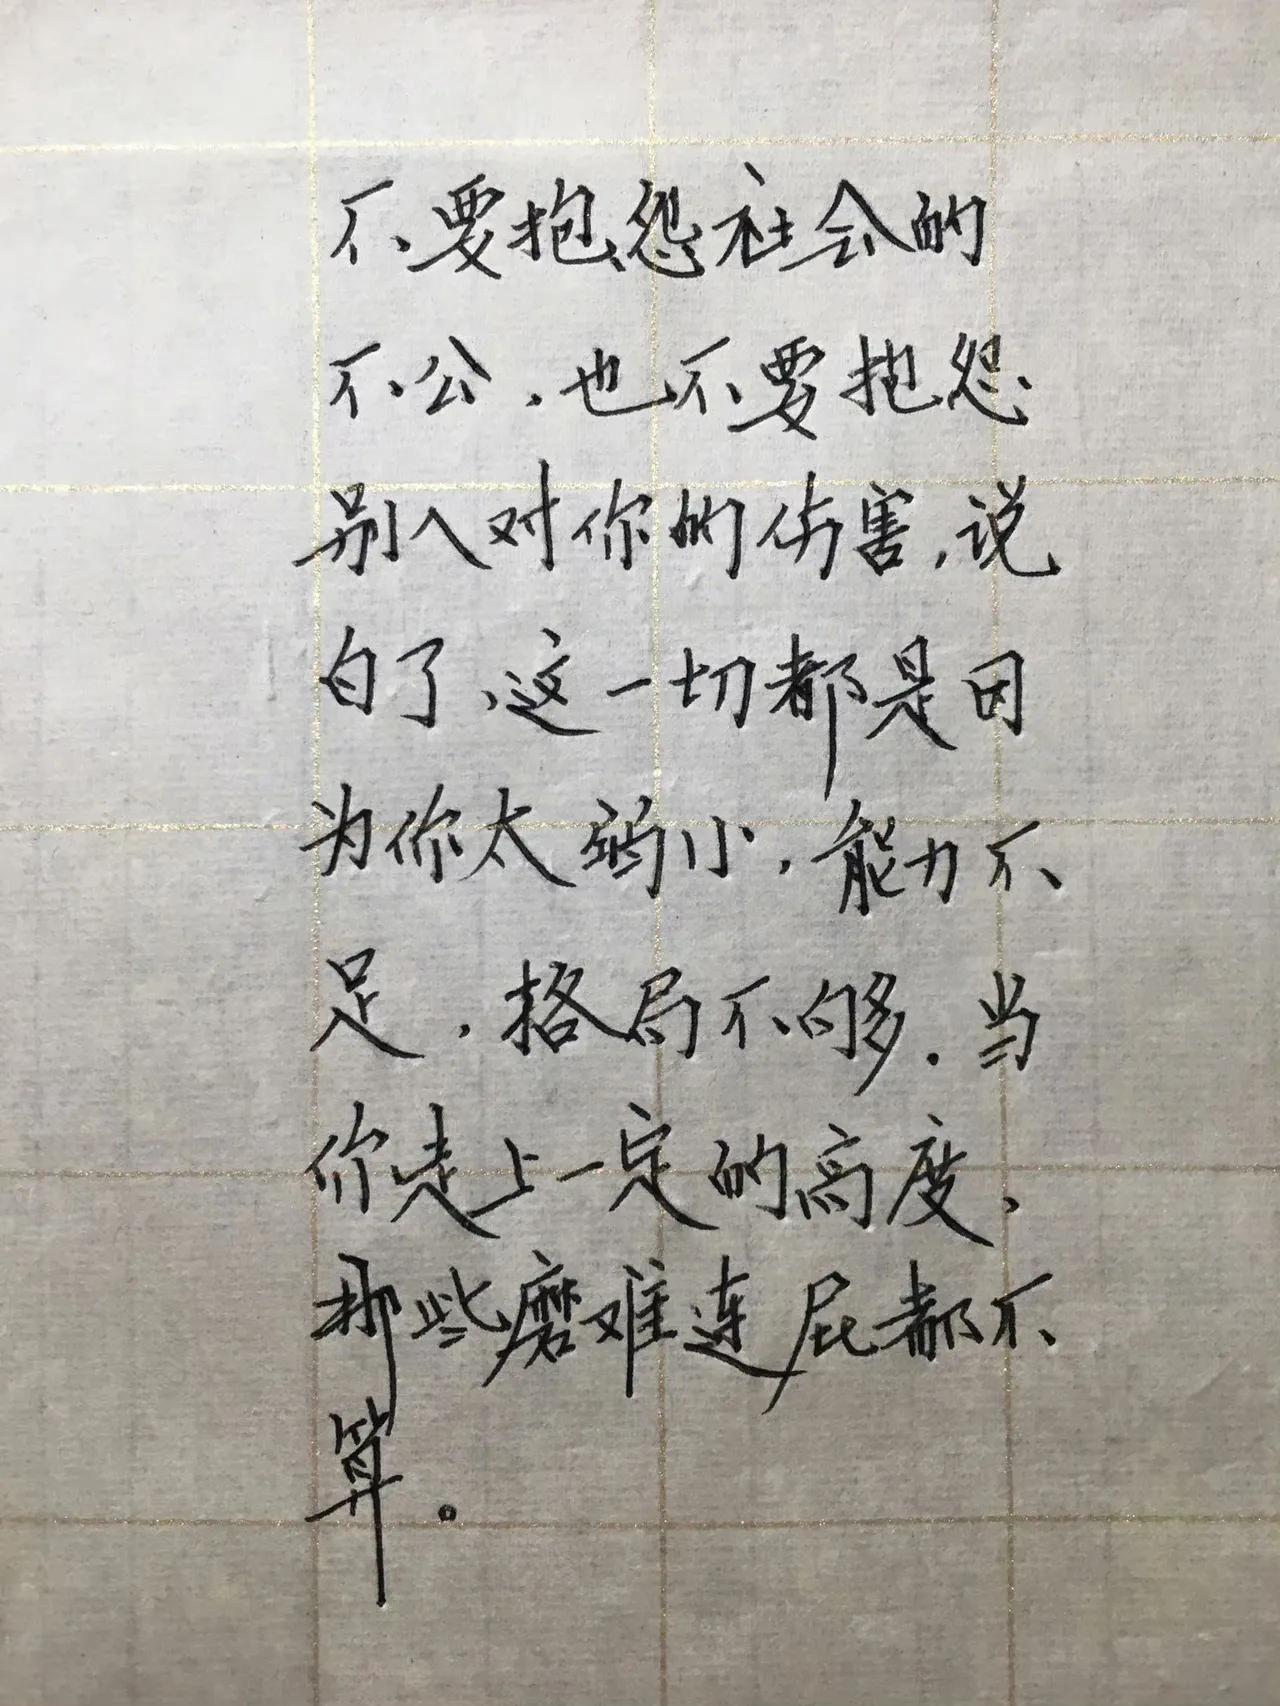 不要抱怨社会的
不公,也不要抱怨
别人对你的伤害,说
白了、这一切都是因
为你太弱小,能力不
足,格局不够.当
你走上一定的高度、
那些磨难连屁都不
算。